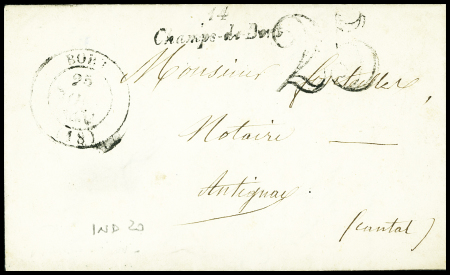 14
Champs-de-Bort
25
BORT
25
(18)
Monsieur
Notaire
Antignac.
(Cantal)
IND 20